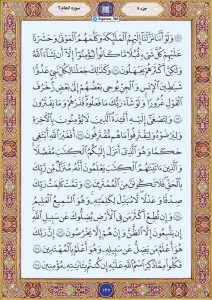 جزء ۸
سورة الانعام ۶
وَلَوْ أَنَّنَا نَزَّلْنَا إِلَيْهِمُ الْمَلَائِكَةَ وَكَلَّمَهُمُ الْمَوْتَىٰ وَحَشَرْنَا
عَلَيْهِمْ كُلَّ شَيْءٍ قُبُلًا مَا كَانُوا لِيُؤْمِنُوا إِلَّا أَنْ يَشَاءَ اللَّهُ
وَلَٰكِنَّ أَكْثَرَهُمْ يَجْهَلُونَ وَكَذَٰلِكَ جَعَلْنَا لِكُلِّ نَبِيٍّ عَدُوًّا
شَيَاطِينَ الْإِنْسِ وَالْجِنِّ يُوحِي بَعْضُهُمْ إِلَىٰ بَعْضٍ زُخْرُفَ
الْقَوْلِ غُرُورًا وَلَوْ شَاءَ رَبُّكَ مَا فَعَلُوهُ فَذَرْهُمْ وَمَا يَفْتَرُونَ
وَلِتَصْغَىٰ إِلَيْهِ أَفْئِدَةُ الَّذِينَ لَا يُؤْمِنُونَ بِالْآخِرَةِ
وَلِيَرْضَوْهُ وَلِيَقْتَرِفُوا مَا هُمْ مُقْتَرِفُونَ أَفَغَيْرَ اللَّهِ أَبْتَغِي
حَكَمًا وَهُوَ الَّذِي أَنْزَلَ إِلَيْكُمُ الْكِتَابَ مُفَصَّلًا
وَالَّذِينَ آتَيْنَاهُمُ الْكِتَابَ يَعْلَمُونَ أَنَّهُ مُنَزَّلٌ مِنْ رَبِّكَ
بِالْحَقِّ فَلَا تَكُونَنَّ مِنَ الْمُمْتَرِينَ وَتَمَّتْ كَلِمَتُ رَبِّكَ
صِدْقًا وَعَدْلًا لَا مُبَدِّلَ لِكَلِمَاتِهِ وَهُوَ السَّمِيعُ الْعَلِيمُ
وَإِنْ تُطِعْ أَكْثَرَ مَنْ فِي الْأَرْضِ يُضِلُّوكَ عَنْ سَبِيلِ اللَّهِ
إِنْ يَتَّبِعُونَ إِلَّا الظَّنَّ وَإِنْ هُمْ إِلَّا يَخْرُصُونَ إِنَّ رَبَّكَ
هُوَ أَعْلَمُ مَنْ يَضِلُّ عَنْ سَبِيلِهِ وَهُوَ أَعْلَمُ بِالْمُهْتَدِينَ
فَكُلُوا مِمَّا ذُكِرَ اسْمُ اللَّهِ عَلَيْهِ إِنْ كُنْتُمْ بِآيَاتِهِ مُؤْمِنِينَ
۱۴۲